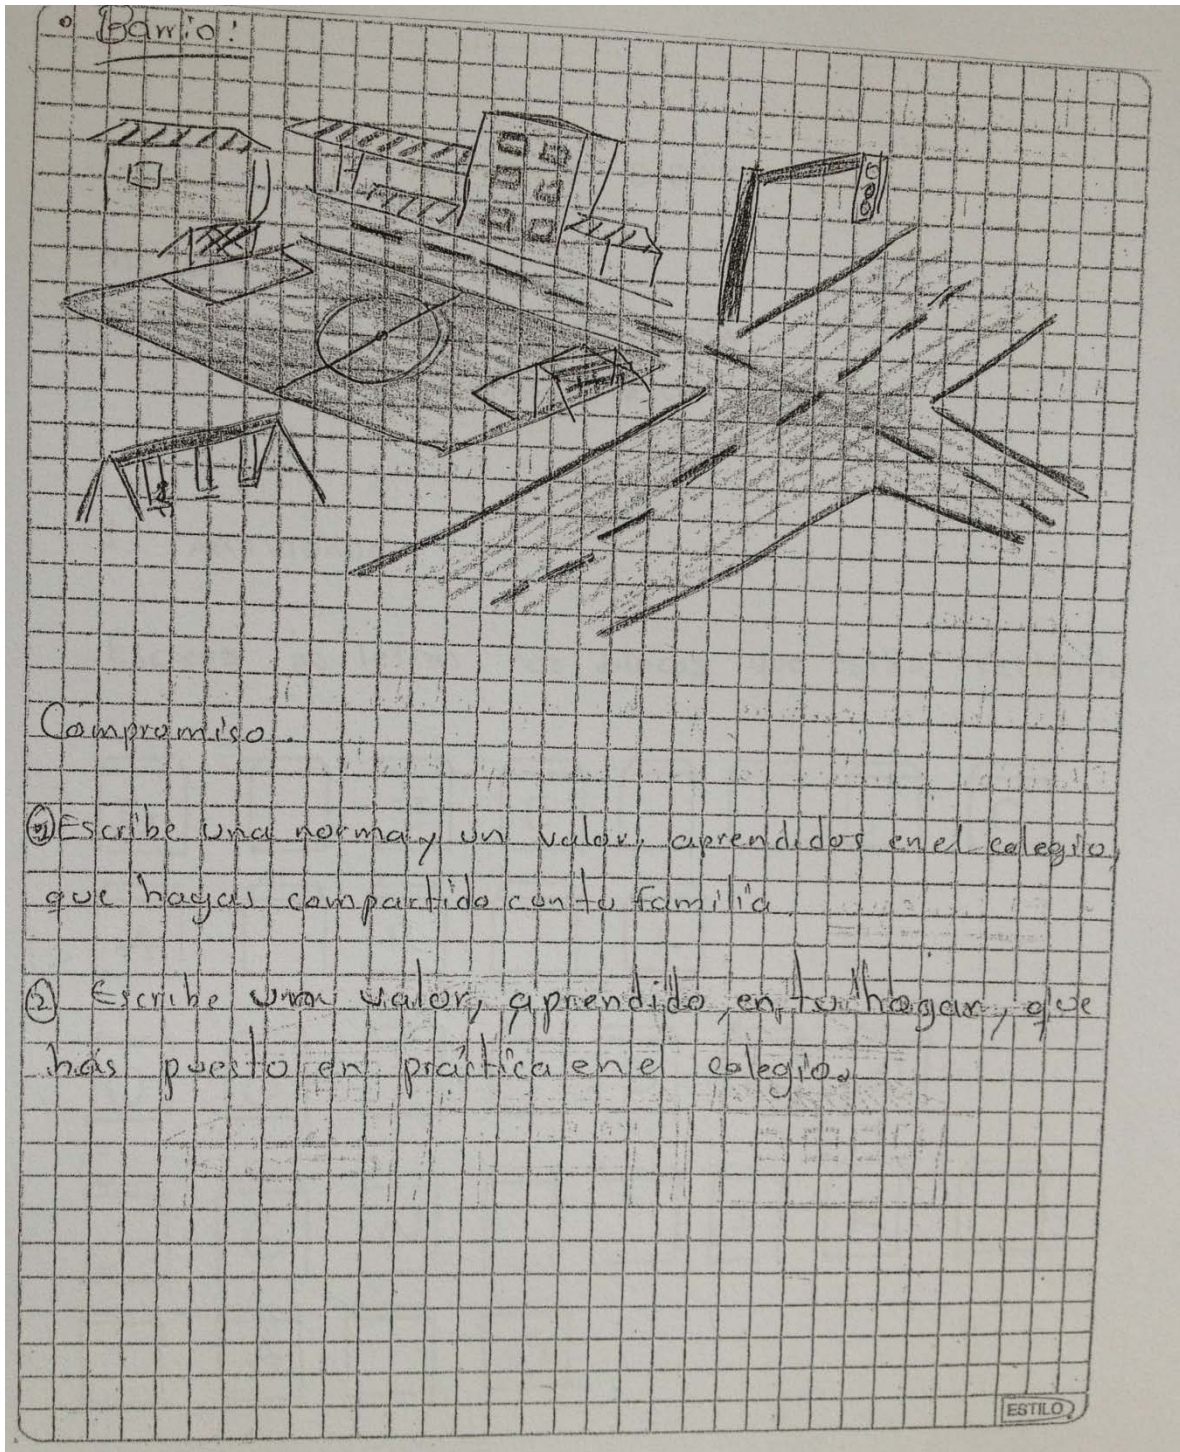 ° Barrio:
Compromiso.
① Escribe una norma y un valor, aprendidos en el colegio,
que hayas compartido con tu familia.
② Escribe un valor, aprendido, en tu hogar, que
has puesto en práctica en el colegio.
ESTILO